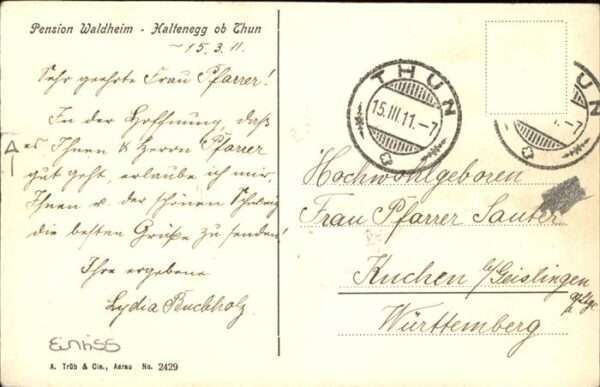 Pension Waldheim - Haltenegg ob Thun
15.3.11.
Sehr geehrte Frau Pfarrer!
In der Hoffnung, daß
es Ihnen & Herrn Pfarrer
gut geht, erlaube ich mir,
Ihnen v. der schönen Schweiz
die besten Grüße zu senden!
Ihre ergebene
Lydia Buchholz
A. Trüb & Cie., Aarau No. 2429
THUN
15.III.11.-7
UN
-7
Hochwohlgeboren
Frau Pfarrer Sauter
Kuchen b/Geislingen
Württemberg